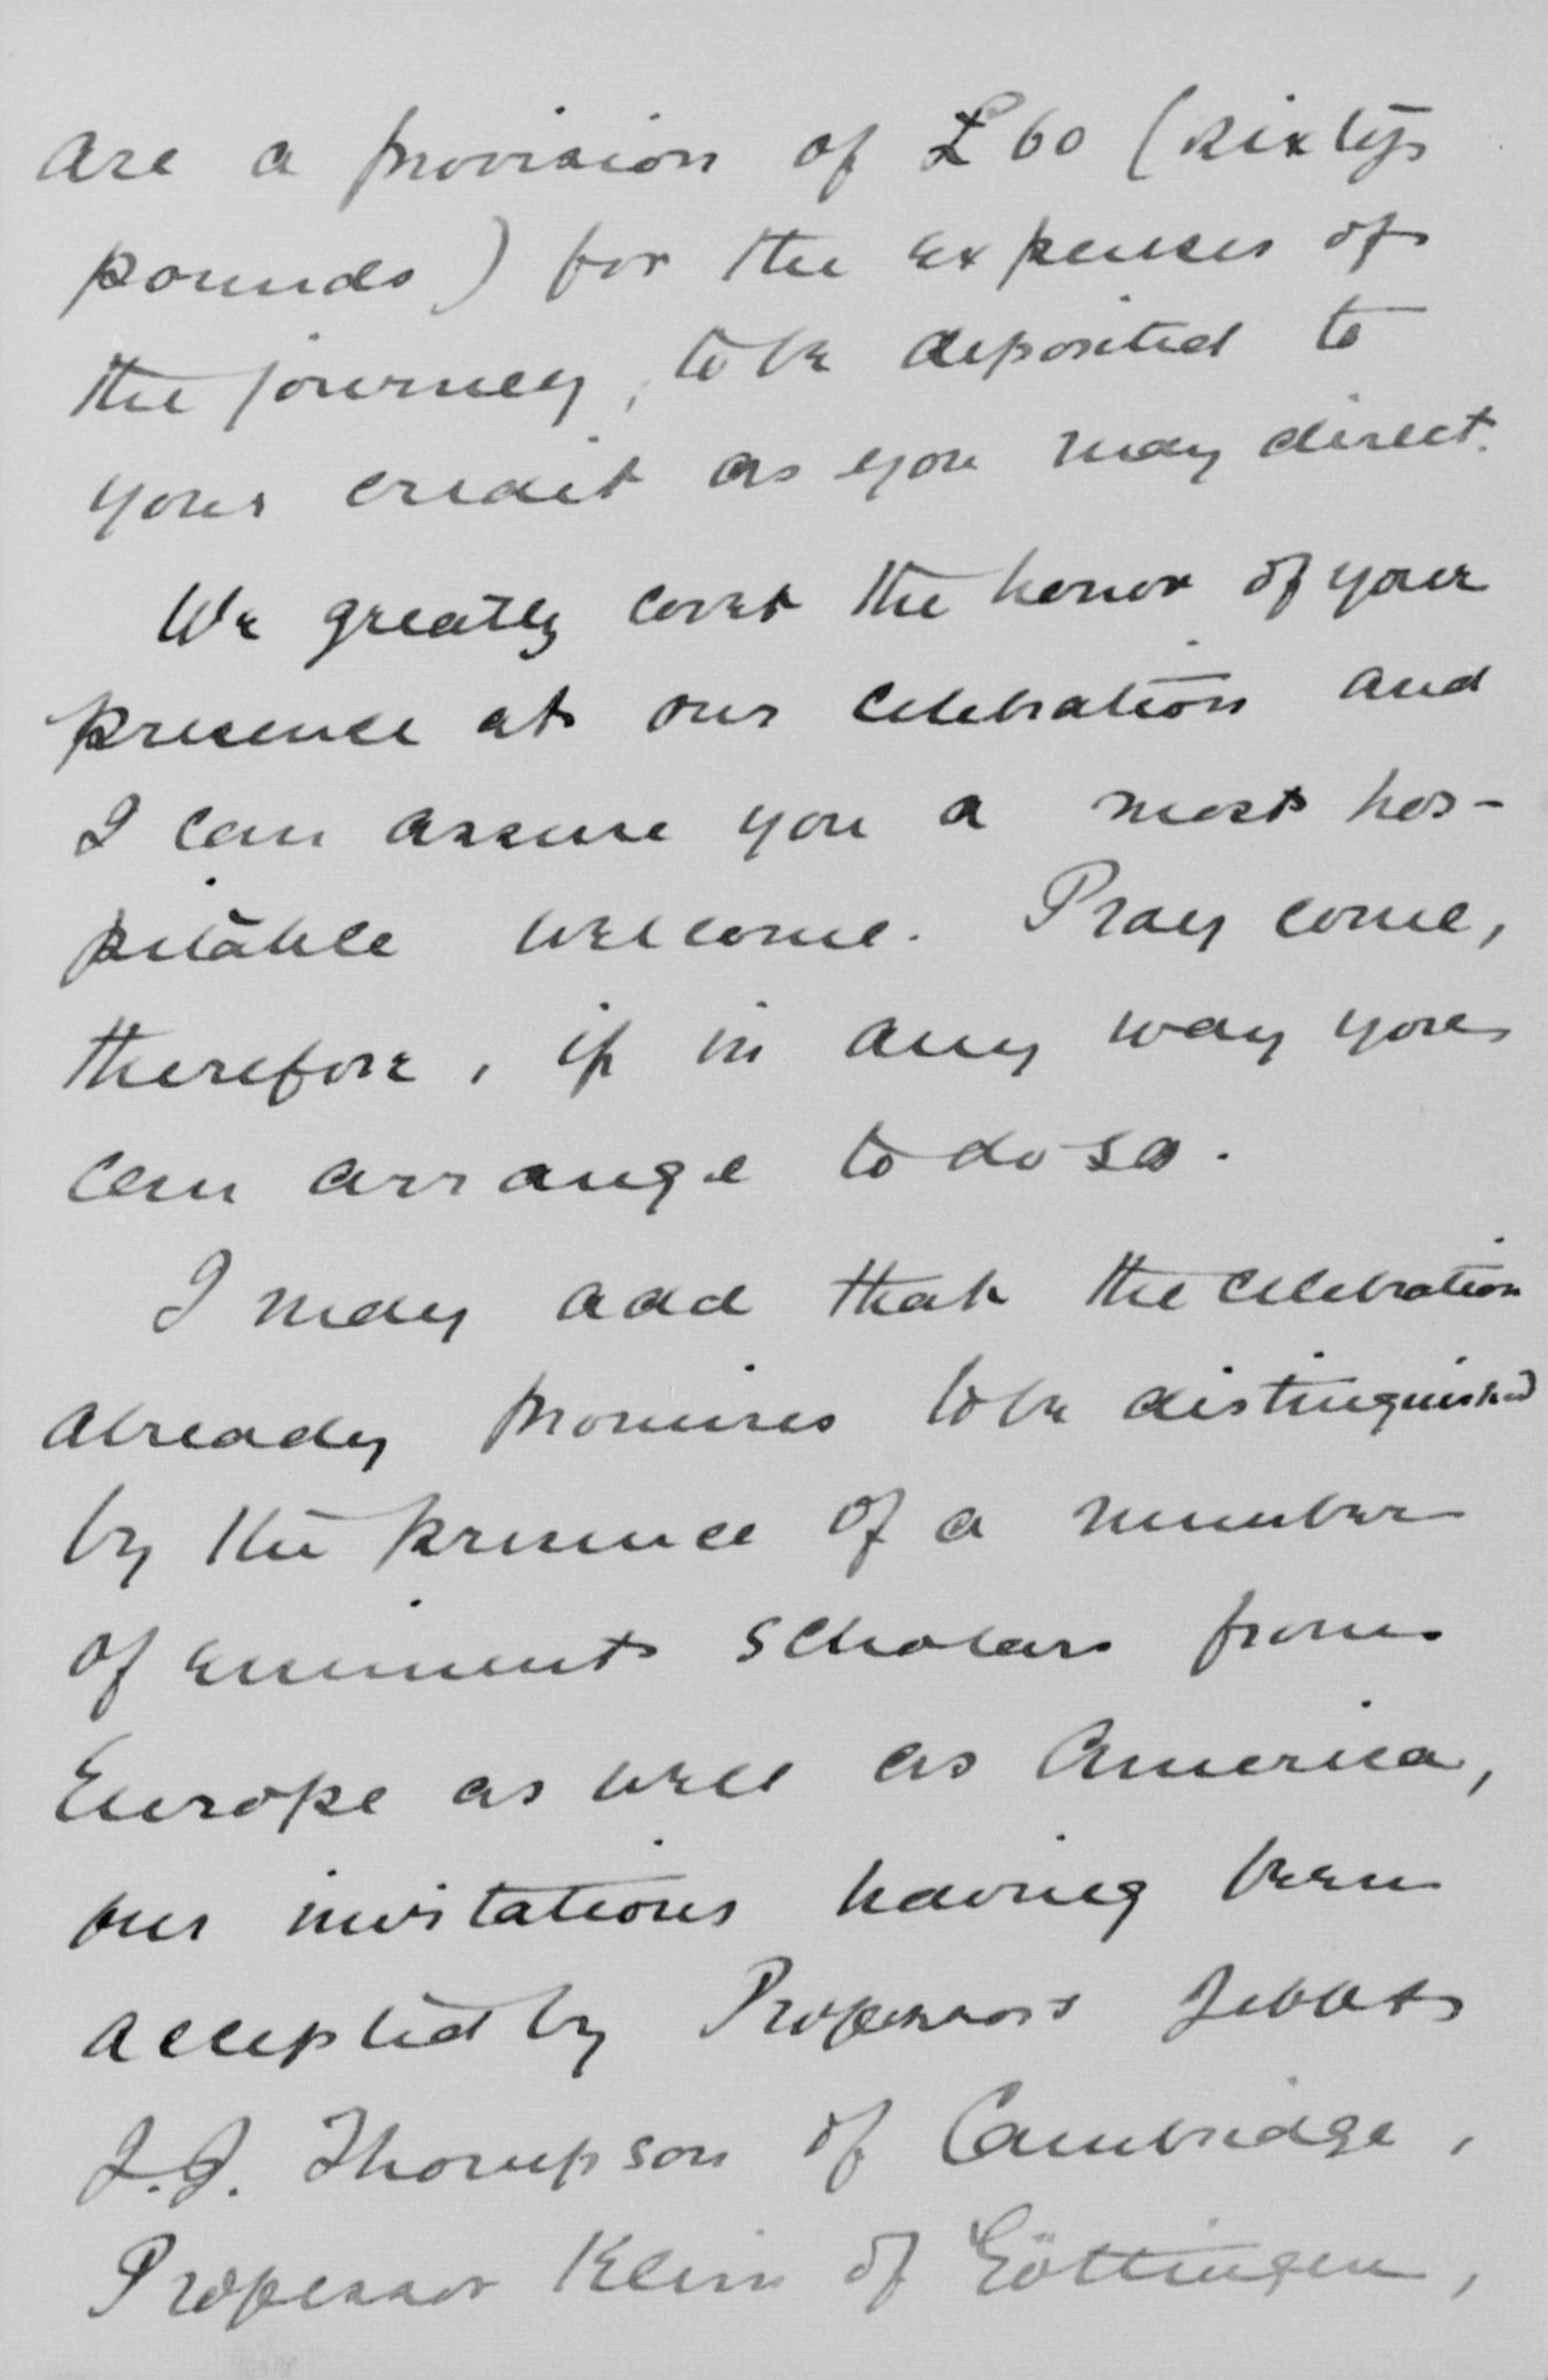 are a provision of £60 (sixty
pounds) for the expenses of
the journey, to be deposited to
your credit as you may direct.
We greatly covet the honor of your
presence at our celebration and
I can assure you a most hos-
pitable welcome. Pray come,
therefore, if in any way you
can arrange to do so.
I may add that the celebration
already promises to be distinguished
by the presence of a number
of eminent scholars from
Europe as well as America,
our invitations having been
accepted by Professors
J.J. Thompson of Cambridge,
Professor Klein of Göttingen,